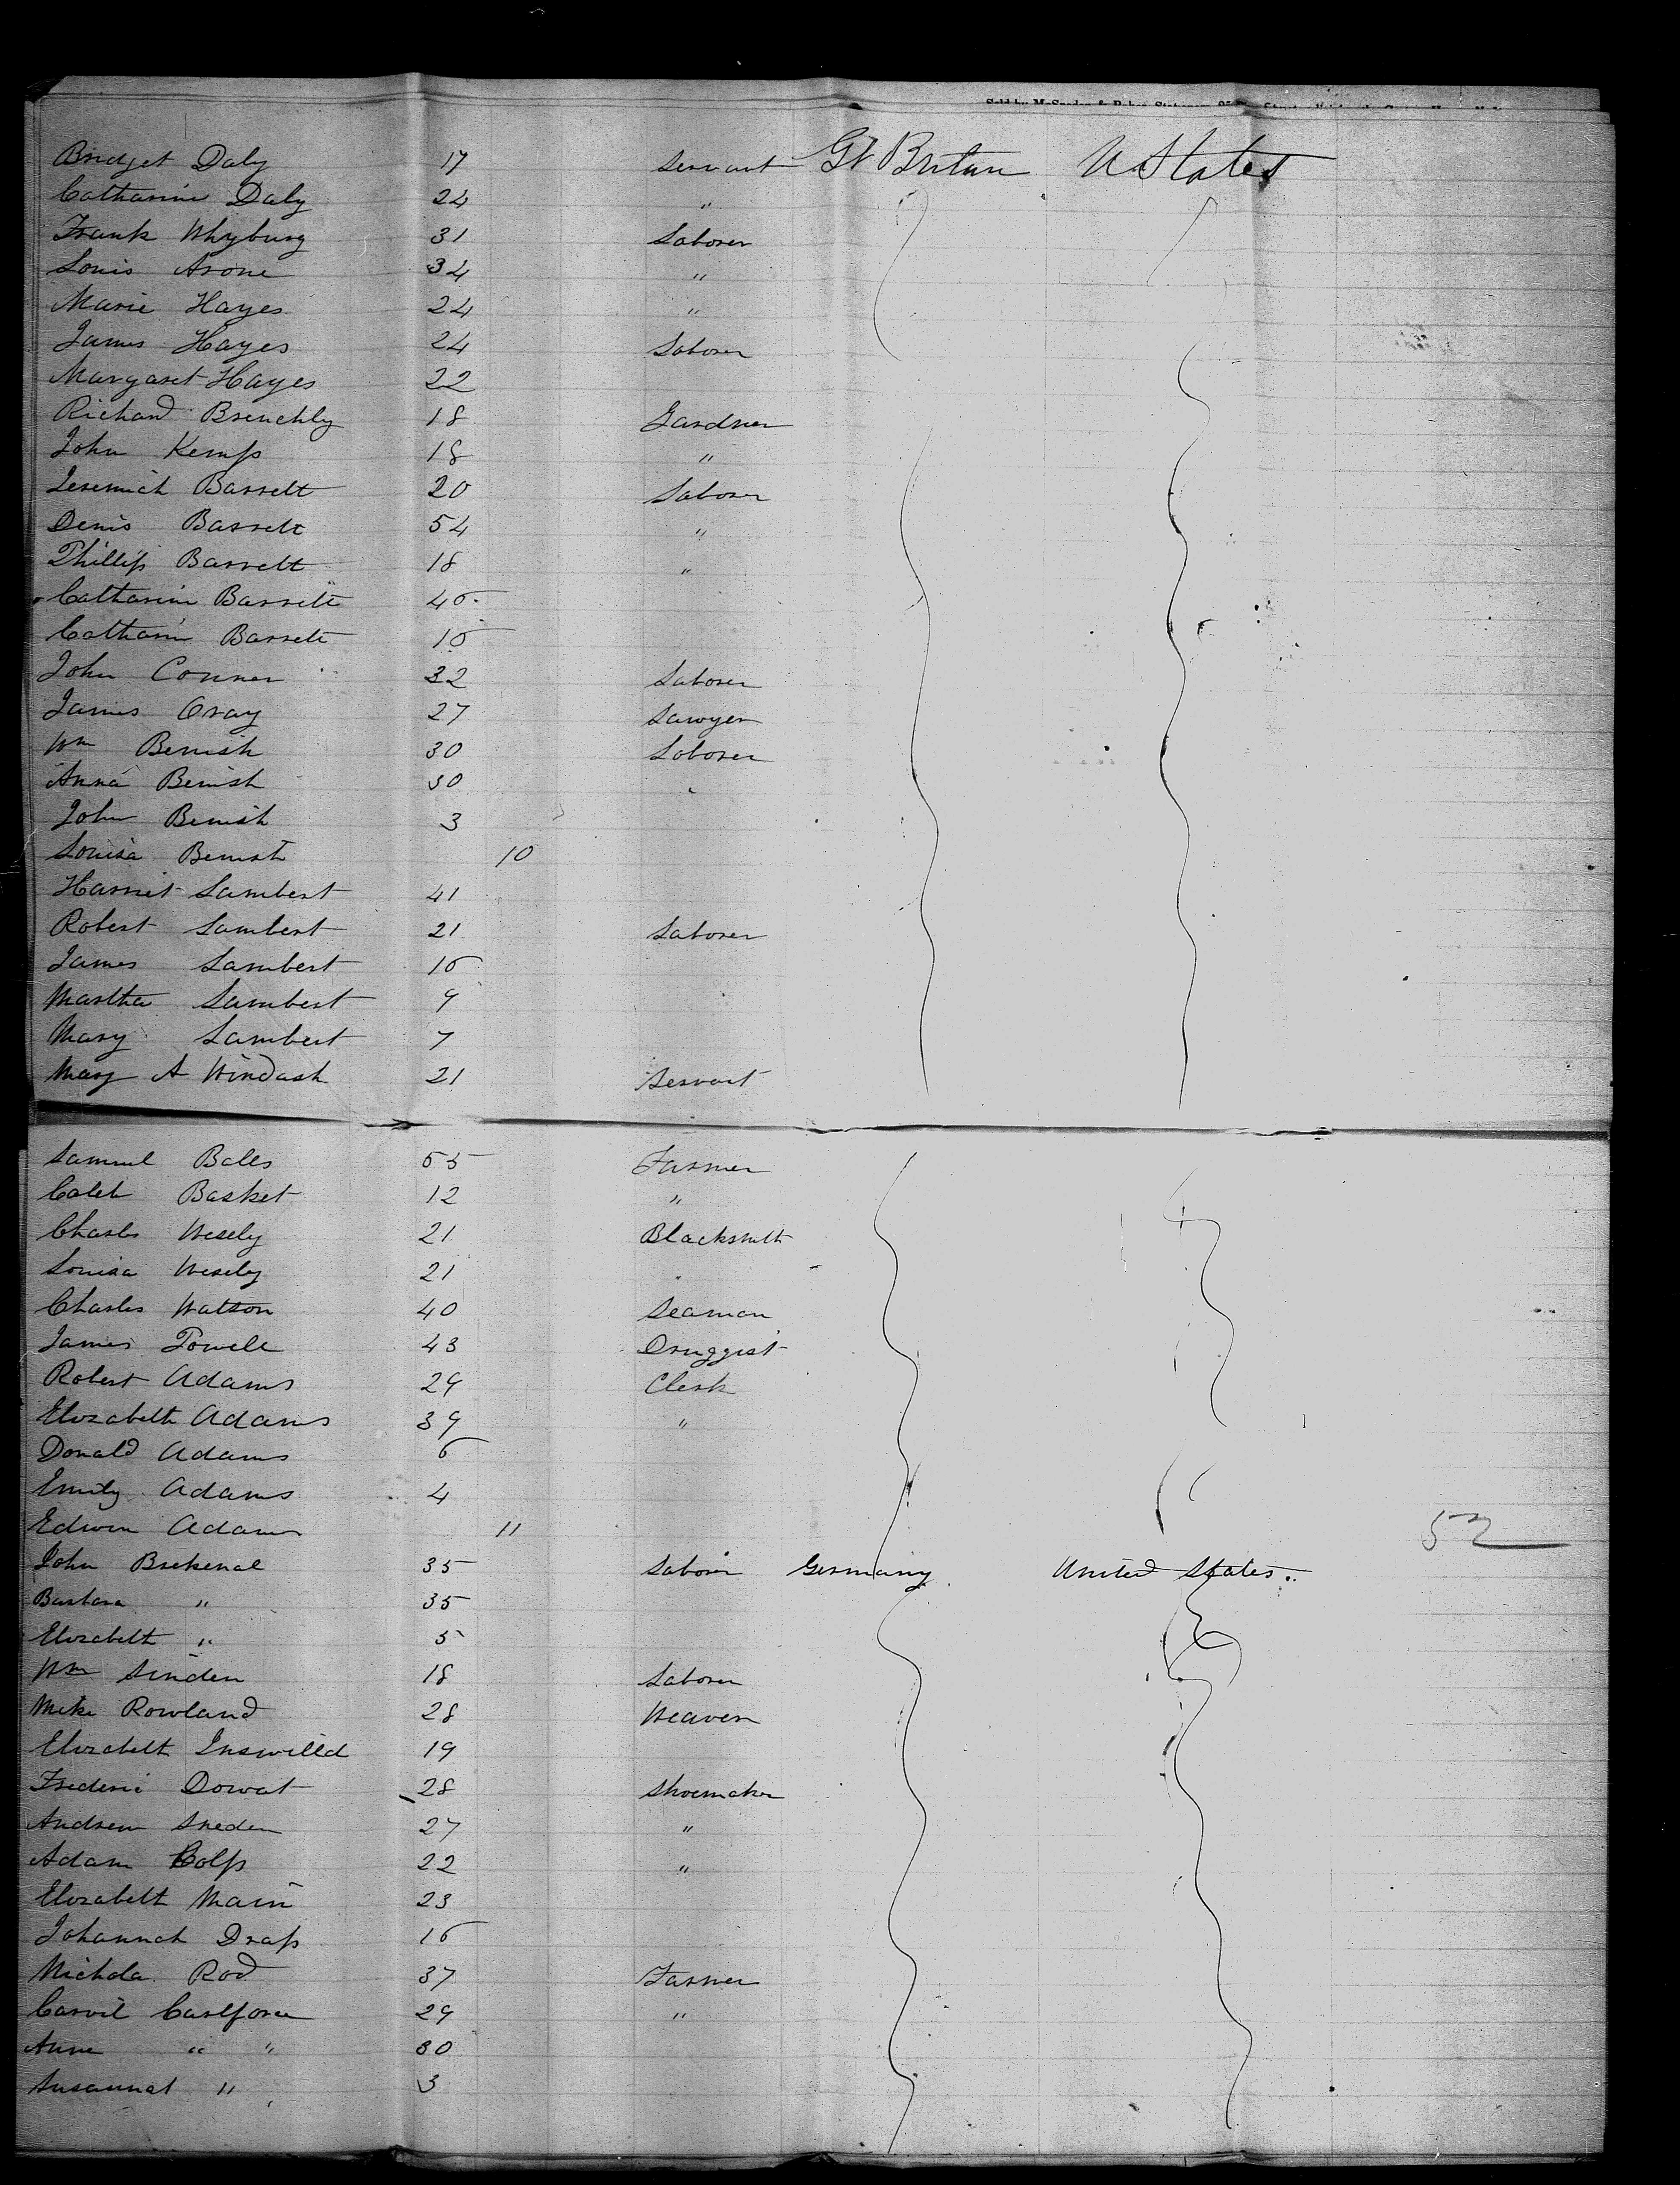 Bridget Daly 17 Servant Gt Britain U States
Catharine Daly 24 "
Frank Whyburg 31 Laborer
Louis Arone 34 "
Marie Hayes 24 "
James Hayes 24 Laborer
Margaret Hayes 22
Richard Brenchly 18 Gardner
John Kemp 18 "
Jeremiah Barrett 20 Laborer
Denis Barrett 54 "
Phillip Barrett 18 "
Catharine Barrett
Catharin Barrett
John Conner 32 Laborer
James Gray 27 Sawyer
Wm Benish 30 Laborer
Anna Benish 30
John Benish 3
Louisa Benish 10
Harriet Lambert 41
Robert Lambert 21 Laborer
James Lambert
Martha Lambert 9
Mary Lambert 7
Mary A Windash 21 Servant
Samuel Bales 55 Farmer
Caleb Basket 12 "
Charles Wesely 21 Blacksmith
Louisa Wesely 21
Charles Watson 40 Seaman
James Powell 43 Druggist
Robert Adams 29 Clerk
Elizabeth Adams 39 "
Donald Adams
Emily Adams 4
Edwin Adams 11
52
John Brekenal 35 Laborer Germany United States
Barbara " 35
Elizabeth " 5
Wm Sinden 18 Laborer
Mike Rowland 28 Weaver
Elizabeth Inswilld 19
Frederic Dowat 28 Shoemaker
Andrew Sneden 27 "
Adam Colp 22 "
Elizabeth Main 23
Johannah Drap
Nichola Rod 37 Farmer
Carvil Carlfora 29 "
Anne " " 30
Susannah " 3